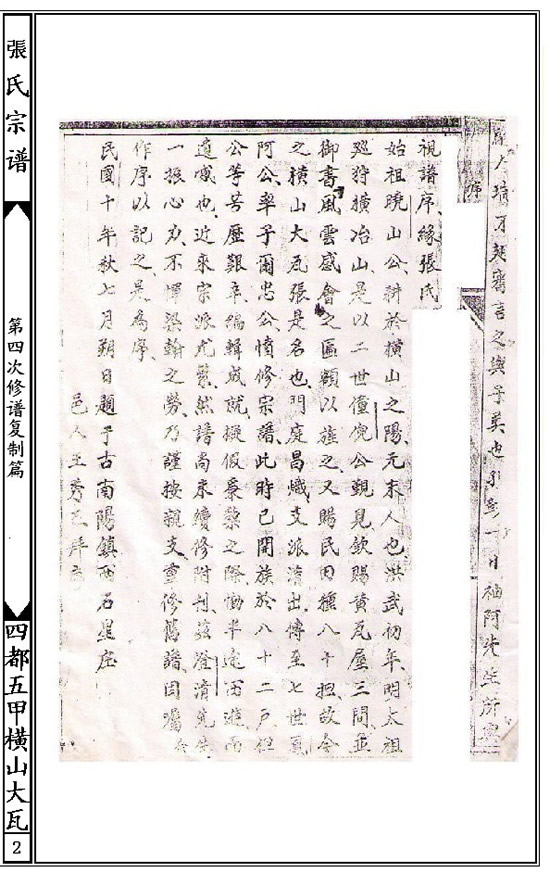 視譜序緣張氏
始祖曉山公耕於橫山之陽元末人也洪武初年明太祖
巡狩橫冶山是以二世僮倪公覲見欽賜黃瓦屋三間並
御書風雲感會之匾額以旌之又賜民田種八十担故今
之橫山大瓦張是名也門庭昌熾支派清出傳至七世夏
阿公率子爾忠公憤修宗譜此時已開族於八十二戶但
公等苦歷艱辛編輯成就擬棗黎之際慟半途而逝而
遺憾也近來宗派尤繁然譜尚未續修附刊茲澄清先生
一振心力不憚梁翰之勞乃謹按親支重修舊譜因囑余
作序以記之是為序
民國十年秋七月朔日題于古南陽鎮西石星庄
邑人王秀拜
張氏宗谱
第四次修谱复制篇
四都五甲橫山大瓦
2